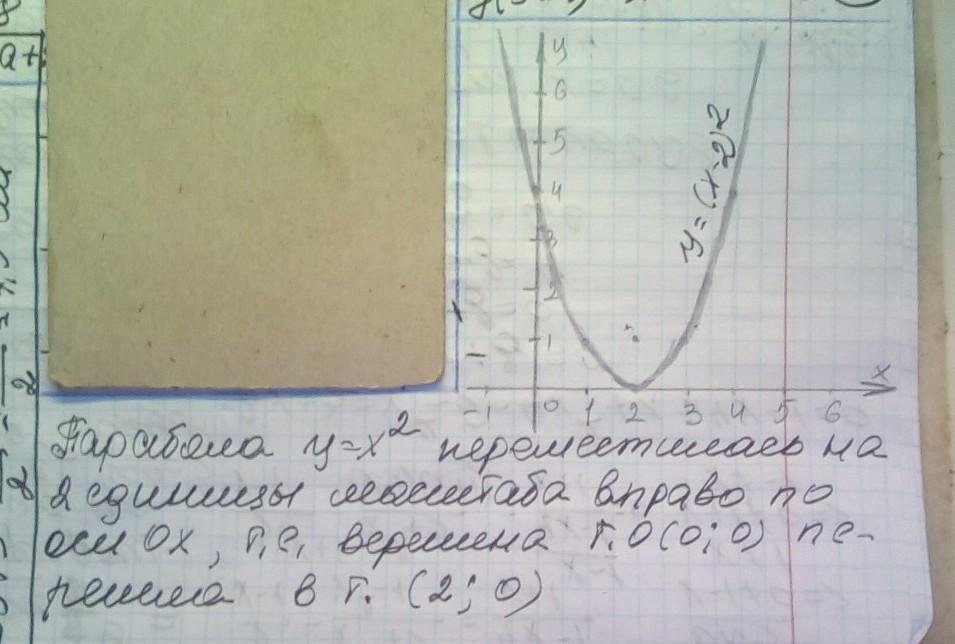 a+
y
6
5
4
3
2
1
y=(x-2)2
x
-1 0 1 2 3 4 5 6
Парабола y=x² переместилась на
2 единицы масштаба вправо по
оси Ox, т.е. вершина т.O(0;0) пе-
решла в т. (2;0)